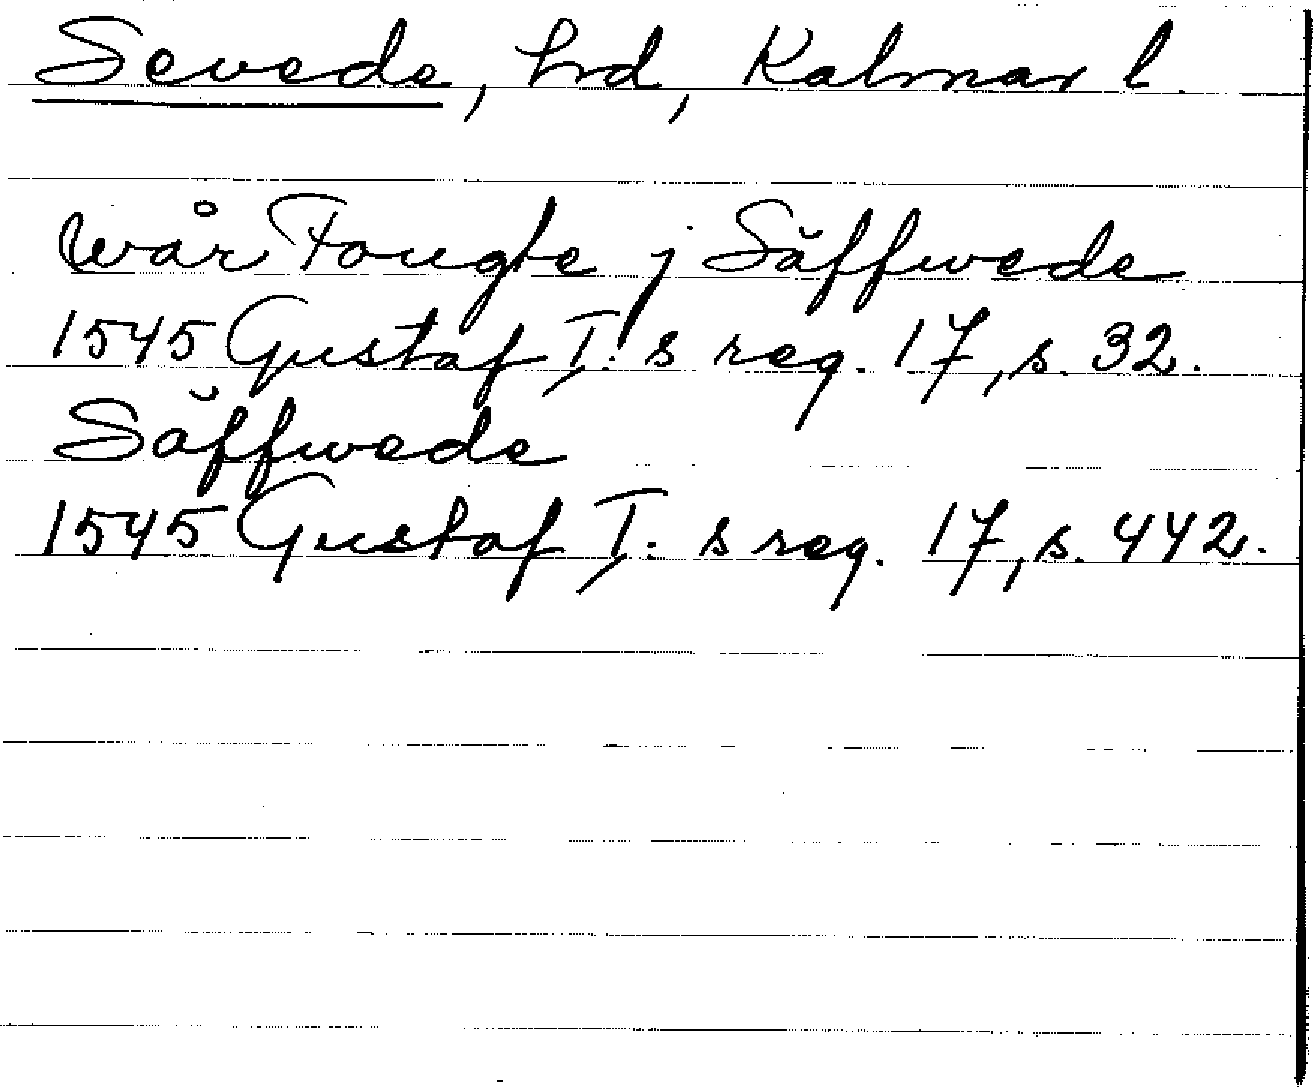 Sevede, hrd, Kalmar l.
wår Fougte j Säffwede
1545 Gustaf I: s reg. 17, s. 32.
Säffwede
1545 Gustaf I: s reg. 17, s. 442.